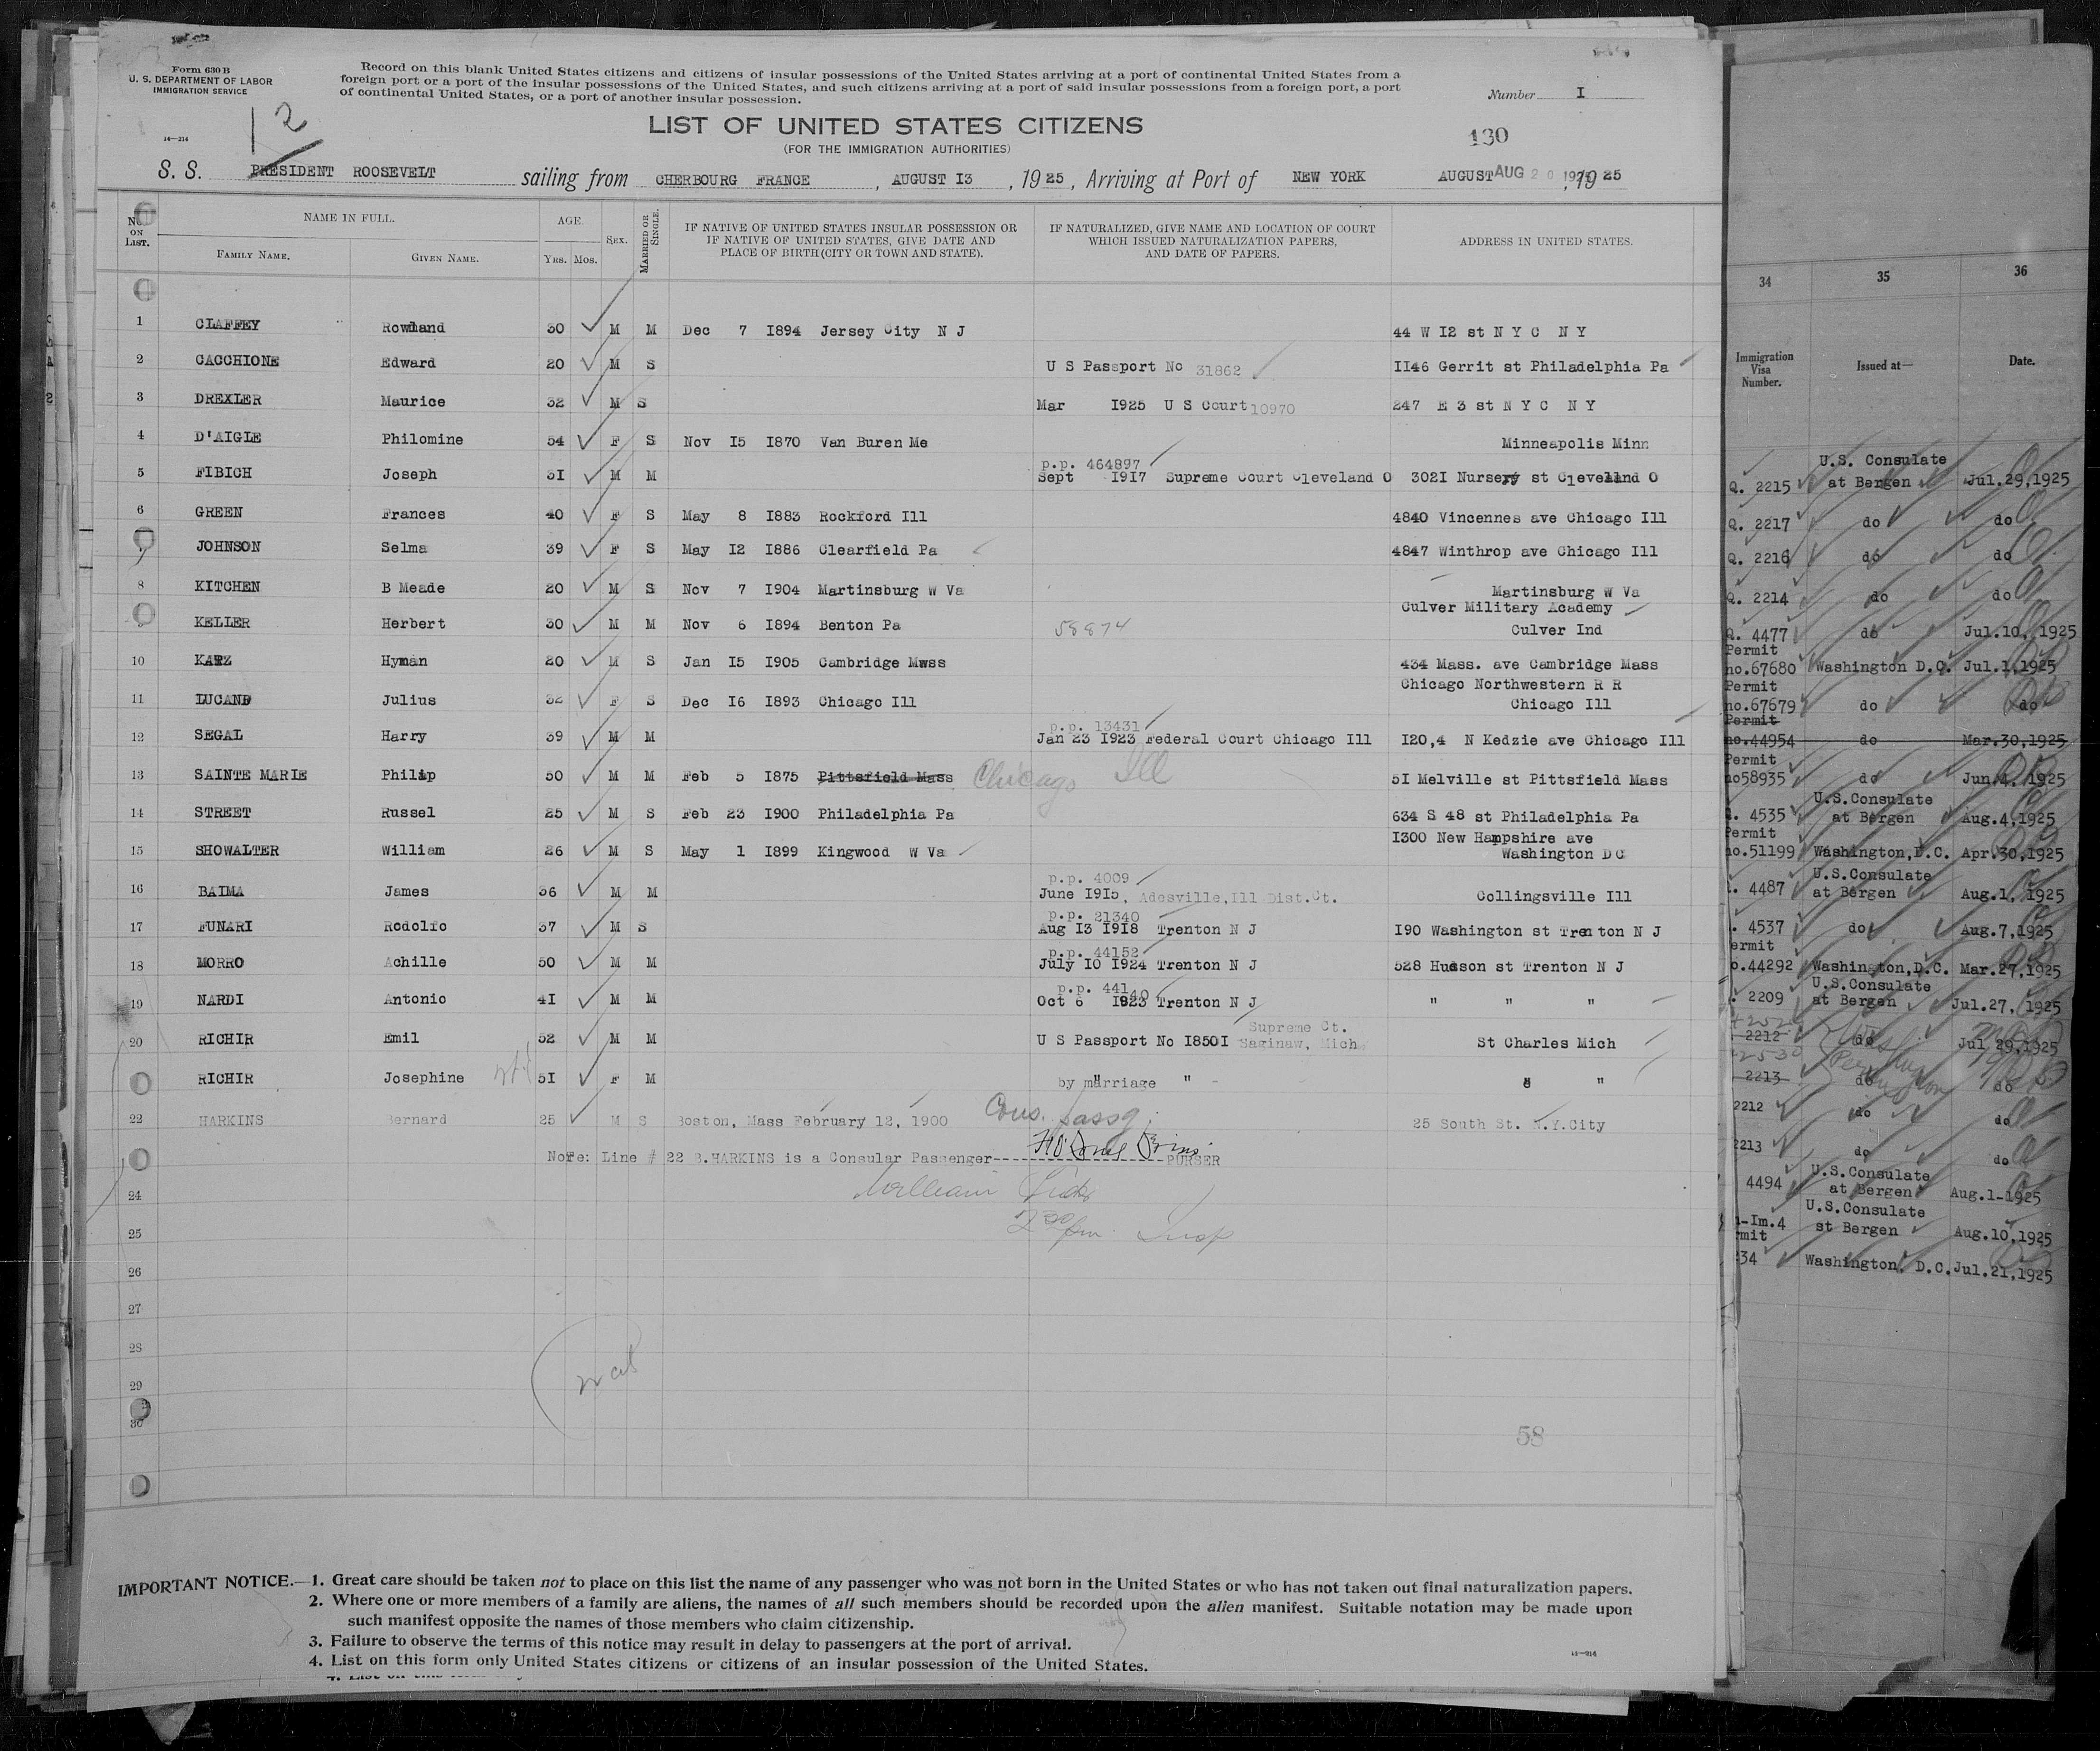 Form 630 B
U. S. DEPARTMENT OF LABOR
IMMIGRATION SERVICE
14—214
12
Record on this blank United States citizens and citizens of insular possessions of the United States arriving at a port of continental United States from a
foreign port or a port of the insular possessions of the United States, and such citizens arriving at a port of said insular possessions from a foreign port, a port
of continental United States, or a port of another insular possession.
Number I
LIST OF UNITED STATES CITIZENS
(FOR THE IMMIGRATION AUTHORITIES)
130
S. S. PRESIDENT ROOSEVELT sailing from CHERBOURG FRANCE, AUGUST I3, 1925, Arriving at Port of NEW YORK AUGUST AUG 20 1925, 1925
No. ON LIST. NAME IN FULL. FAMILY NAME. GIVEN NAME. AGE. YRS. MOS. SEX. MARRIED OR SINGLE. IF NATIVE OF UNITED STATES INSULAR POSSESSION OR IF NATIVE OF UNITED STATES, GIVE DATE AND PLACE OF BIRTH (CITY OR TOWN AND STATE). IF NATURALIZED, GIVE NAME AND LOCATION OF COURT WHICH ISSUED NATURALIZATION PAPERS, AND DATE OF PAPERS. ADDRESS IN UNITED STATES.
1 CLAFFEY Rowland 30 M M Dec 7 I894 Jersey City N J 44 W I2 st N Y C N Y
2 CACCHIONE Edward 20 M S U S Passport No 31862 II46 Gerrit st Philadelphia Pa
3 DREXLER Maurice 32 M S Mar I925 U S Court 10970 247 E 3 st N Y C N Y
4 D'AIGLE Philomine 54 F S Nov I5 I870 Van Buren Me Minneapolis Minn
p.p. 464897
5 FIBICH Joseph 3I M M Sept I9I7 Supreme Court Cleveland O 302I Nursery st Cleveland O
6 GREEN Frances 40 F S May 8 I883 Rockford Ill 4840 Vincennes ave Chicago Ill
7 JOHNSON Selma 39 F S May I2 I886 Clearfield Pa 4847 Winthrop ave Chicago Ill
8 KITCHEN B Meade 20 M S Nov 7 I904 Martinsburg W Va Martinsburg W Va
Culver Military Academy
KELLER Herbert 30 M M Nov 6 I894 Benton Pa 58874 Culver Ind
10 KATZ Hyman 20 M S Jan I5 I905 Cambridge Mass 434 Mass. ave Cambridge Mass
Chicago Northwestern R R
11 LUCAND Julius 32 F S Dec I6 I893 Chicago Ill Chicago Ill
p.p. 13431
12 SEGAL Harry 39 M M Jan 23 I923 Federal Court Chicago Ill I20,4 N Kedzie ave Chicago Ill
13 SAINTE MARIE Philip 50 M M Feb 5 I875 Pittsfield Mass Chicago Ill 5I Melville st Pittsfield Mass
14 STREET Russel 25 M S Feb 23 I900 Philadelphia Pa 634 S 48 st Philadelphia Pa
I300 New Hampshire ave
15 SHOWALTER William 26 M S May 1 I899 Kingwood W Va Washington DC
p.p. 4009
16 BAIMA James 36 M M June I9I5, Adesville,Ill Dist.Ct. Collingsville Ill
p.p. 21340
17 FUNARI Rodolfo 37 M S Aug I3 I9I8 Trenton N J I90 Washington st Trenton N J
p.p. 44152
18 MORRO Achille 50 M M July I0 I924 Trenton N J 528 Hudson st Trenton N J
p.p. 44140
19 NARDI Antonio 4I M M Oct 6 I923 Trenton N J " " "
Supreme Ct.
20 RICHIR Emil 52 M M U S Passport No I850I Saginaw, Mich. St Charles Mich
RICHIR Josephine 5I F M by marriage " " "
22 HARKINS Bernard 25 M S Boston, Mass February 12, 1900 Cons. passg. 25 South St. N.Y.City
Note: Line # 22 B.HARKINS is a Consular Passenger PURSER
24 William
25 2 30 pm. Insp
26
27
28
29
30
58
IMPORTANT NOTICE.—1. Great care should be taken not to place on this list the name of any passenger who was not born in the United States or who has not taken out final naturalization papers.
2. Where one or more members of a family are aliens, the names of all such members should be recorded upon the alien manifest. Suitable notation may be made upon
such manifest opposite the names of those members who claim citizenship.
3. Failure to observe the terms of this notice may result in delay to passengers at the port of arrival.
4. List on this form only United States citizens or citizens of an insular possession of the United States.
14—914
34 35 36
Immigration Visa Number. Issued at— Date.
U.S. Consulate
Q. 2215 at Bergen Jul.29,1925
Q. 2217 do do
Q. 2216 do do
Q. 2214 do do
Q. 4477 do Jul.10, 1925
Permit
no.67680 Washington D.C. Jul.1,1925
Permit
no.67679 do do
Permit
no.44954 do Mar.30,1925
Permit
no58935 do Jun.4, 1925
U.S.Consulate
4535 at Bergen Aug.4,1925
Permit
no.51199 Washington,D.C. Apr.30,1925
U.S.Consulate
4487 at Bergen Aug.1, 1925
4537 do Aug.7,1925
ermit
o.44292 Washington,D.C. Mar.27,1925
U.S.Consulate
2209 at Bergen Jul.27, 1925
2212 do Jul 29,1925
2530
2213 do do
2212 do do
2213 do do
U.S.Consulate
4494 at Bergen Aug.1-1925
U.S.Consulate
-Im.4 st Bergen Aug.10,1925
rmit
34 Washington, D.C. Jul.21,1925